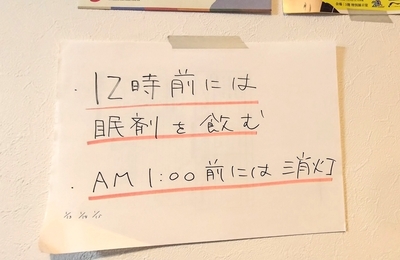 ・12時前には
眠剤を飲む
・AM 1:00 前には 消灯